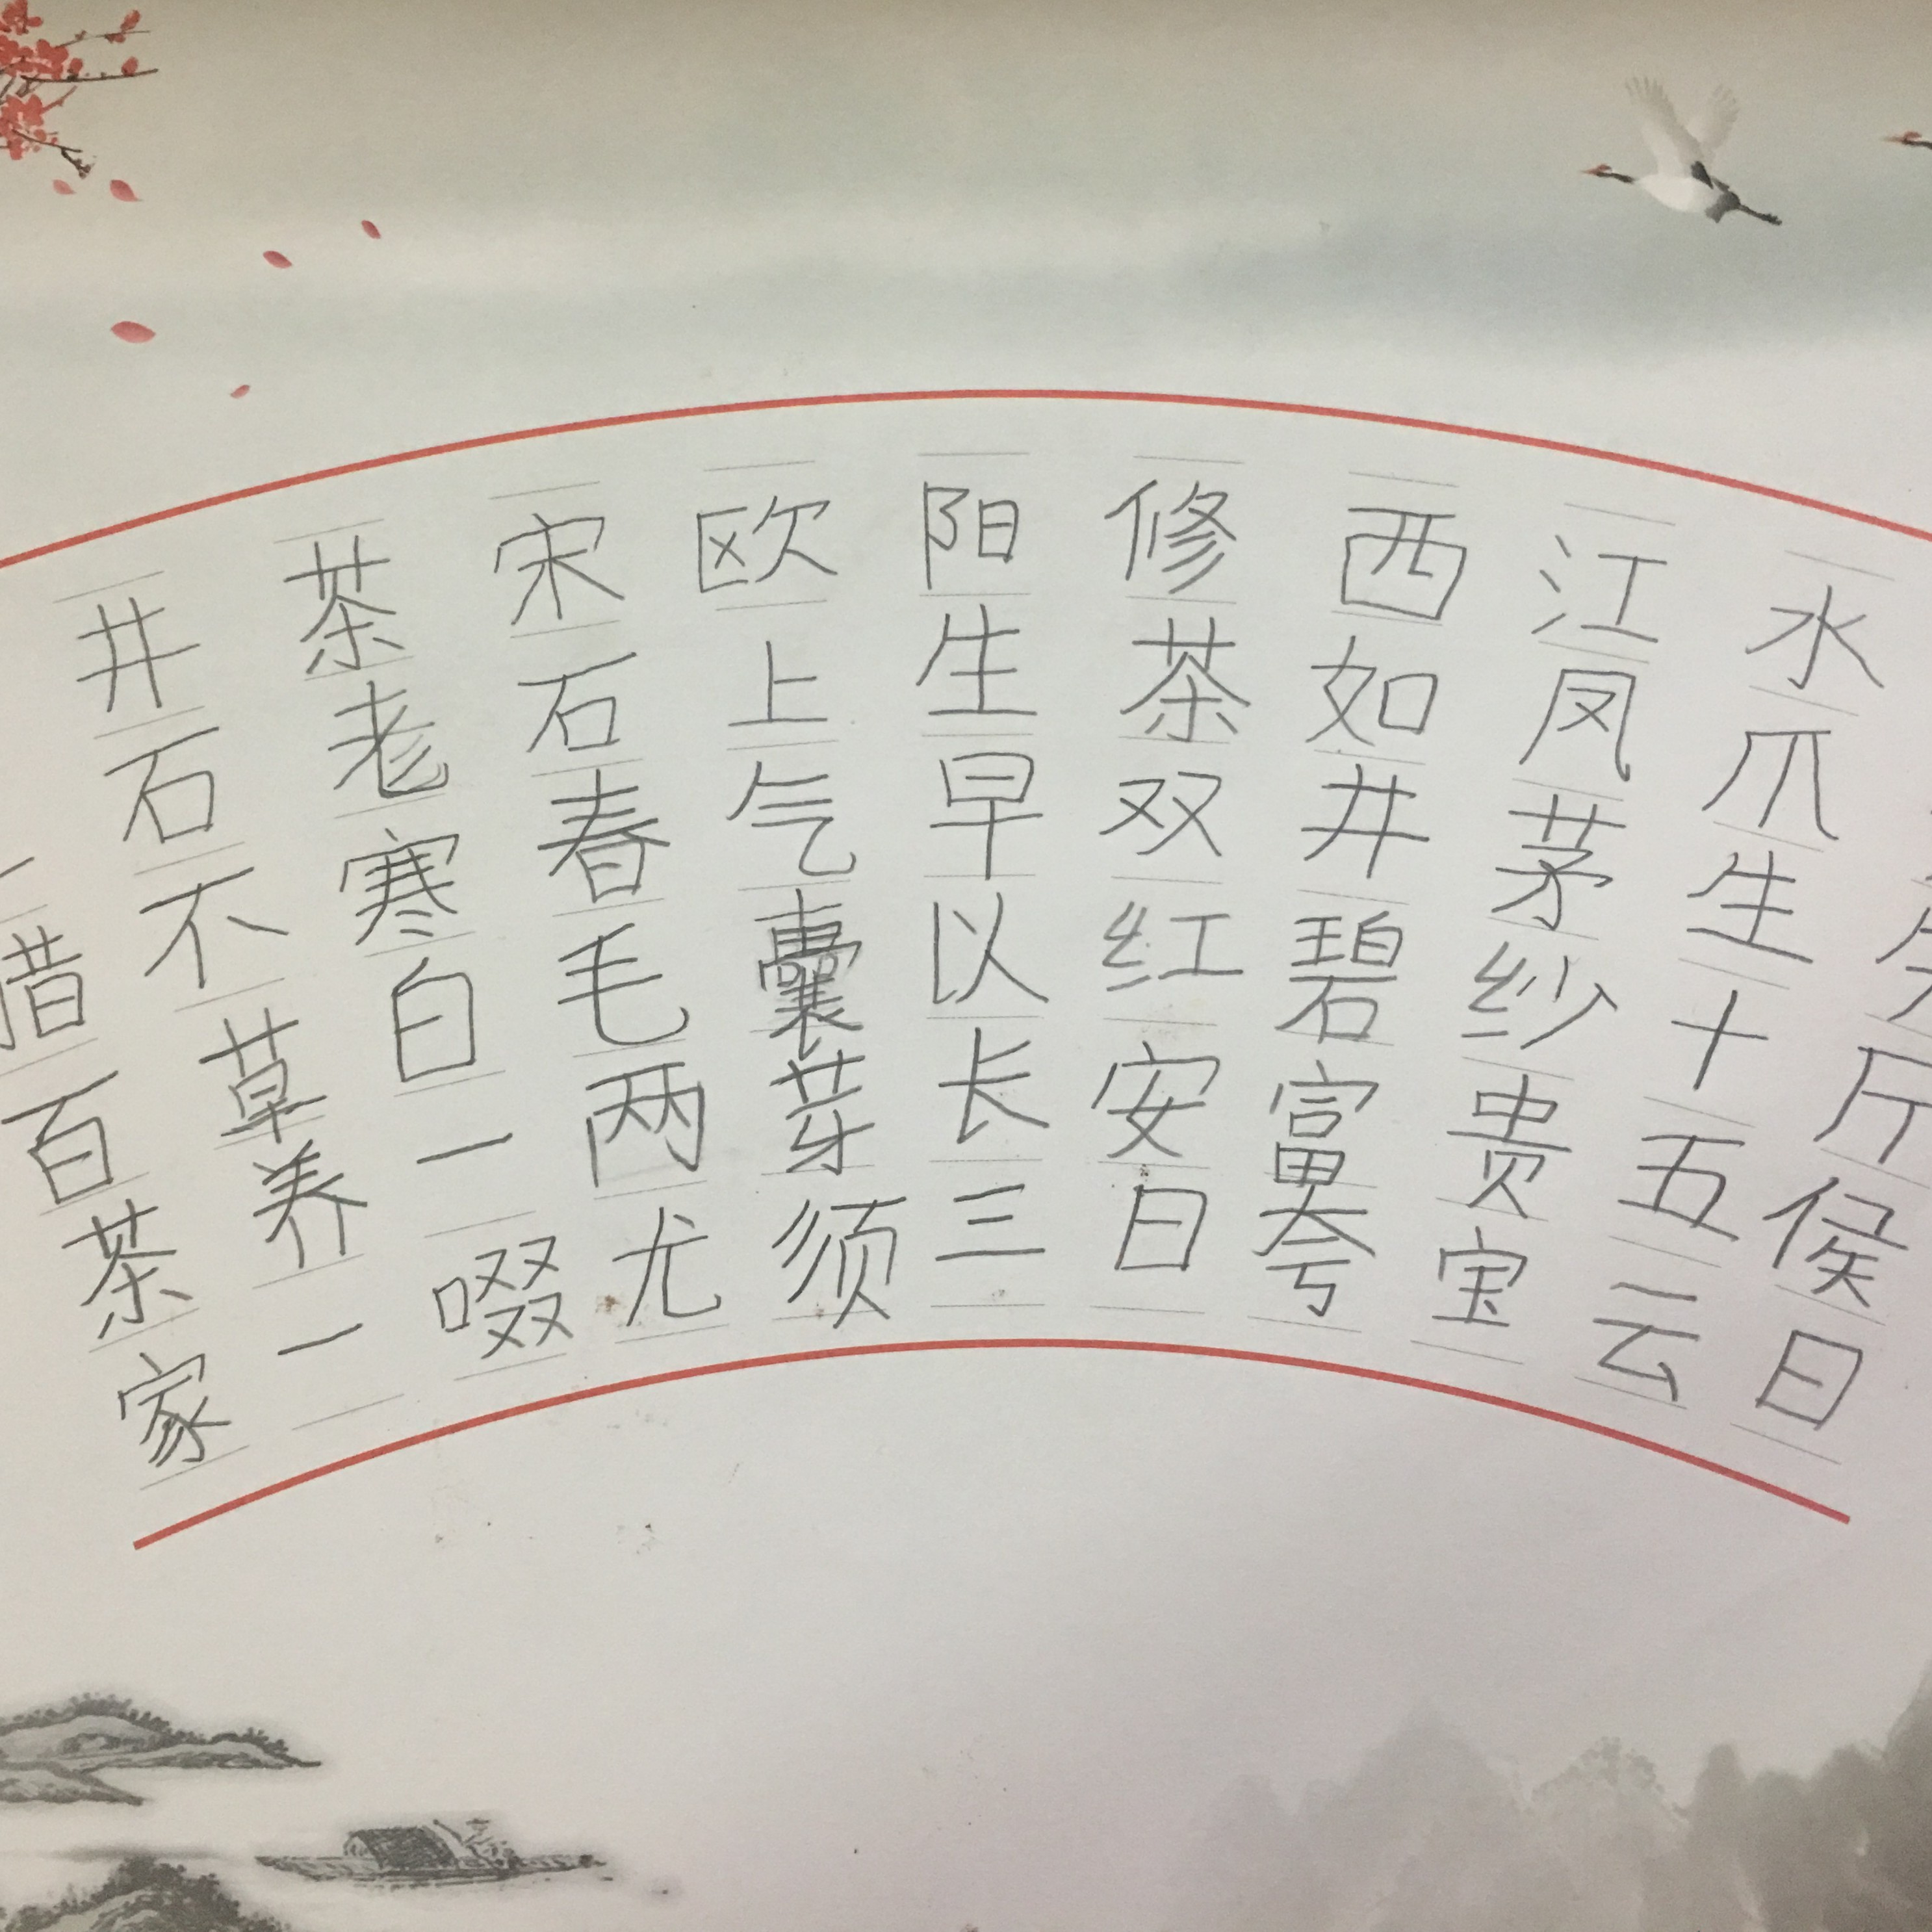 井茶宋欧阳修西江水
石老石上生茶如凤爪
腊不寒春气早双井茅生
百草白毛囊以红碧纱十斤
茶养一两芽长安富贵五侯
家一啜尤须三日夸宝云日